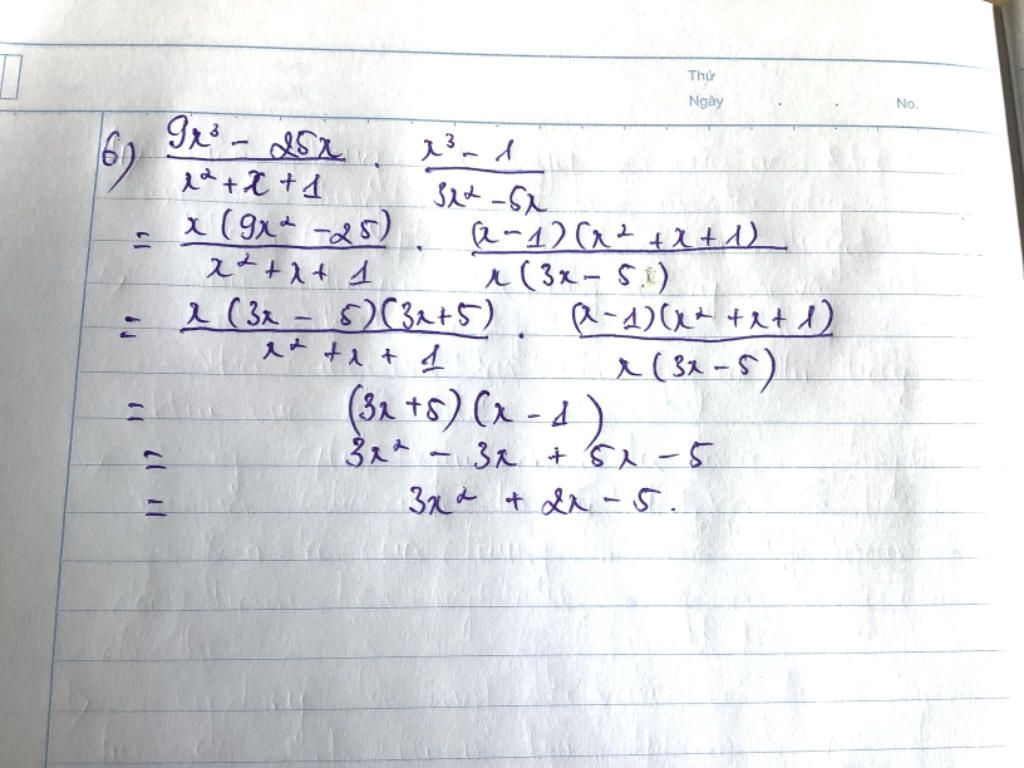 Thứ
Ngày . . No.
6) (9x³ - 25x)/(x² + x + 1) . (x³ - 1)/(3x² - 5x)
= x(9x² - 25)/(x² + x + 1) . (x - 1)(x² + x + 1)/x(3x - 5)
= x(3x - 5)(3x + 5)/(x² + x + 1) . (x - 1)(x² + x + 1)/x(3x - 5)
= (3x + 5)(x - 1)
= 3x² - 3x + 5x - 5
= 3x² + 2x - 5.